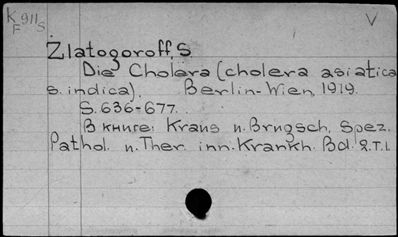 K 911s V
F
Zlatogoroff, S
Die Cholera (cholera asiatica
s. indica). Berlin-Wien, 1919.
S. 636-677.
В книге: Kraus u. Brugsch, Spez.
Pathol. u. Ther. inn. Krankh. Bd. 2. T. 1.